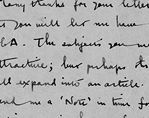 Many thanks for your letter
you will let me have
A. The subjects you me
attractive; but perhaps
ll expand into an article.
nd me a 'Note' in time for